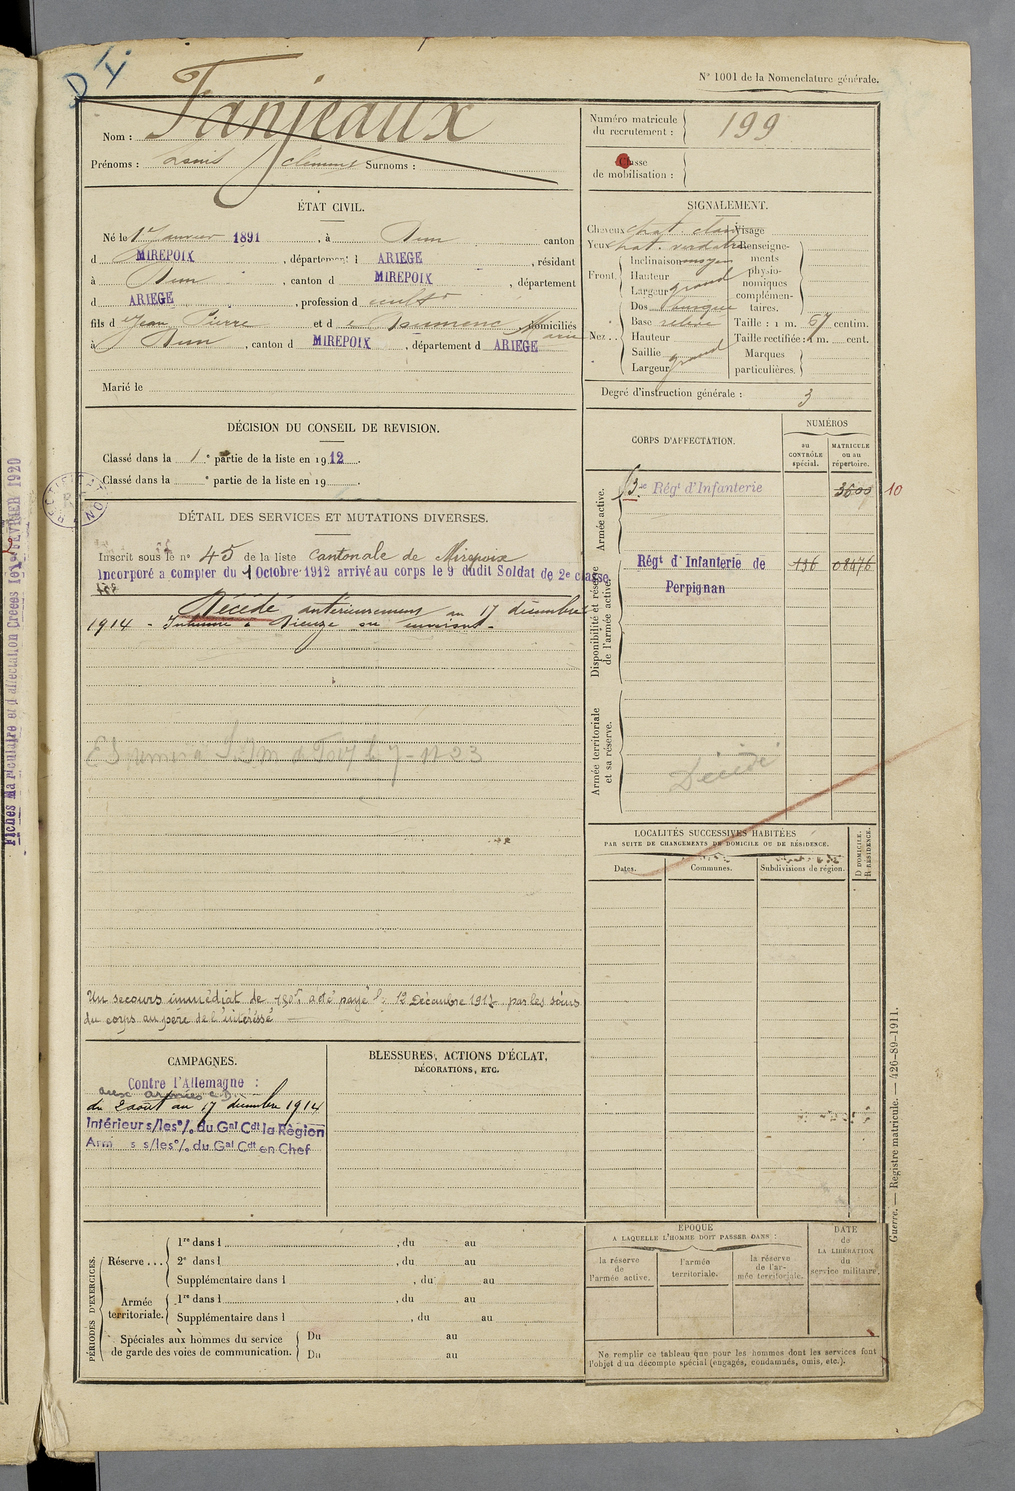 N° 1001 de la Nomenclature générale.
Nom : Fanjeaux
Prénoms : Louis Clément Surnoms :
Numéro matricule du recrutement : 199
Classe de mobilisation :
ÉTAT CIVIL.
Né le 1er Janvier 1891, à Dun canton
d MIREPOIX, département d ARIEGE, résidant
à Dun, canton d MIREPOIX, département
d ARIEGE, profession d cultr
fils d e Jean Pierre et d e Marie, domiciliés
à Dun, canton d MIREPOIX, département d ARIEGE
Marié le
SIGNALEMENT.
Cheveux chat. clair Visage
Yeux chat. verdâtre Renseignements physionomiques complémentaires.
Front. Inclinaison moyen
Hauteur
Largeur grand
Nez.. Dos busqué
Base relevé
Hauteur
Saillie
Largeur grand
Taille : 1 m. 67 centim.
Taille rectifiée : 1 m. cent.
Marques particulières.
Degré d'instruction générale : 3
DÉCISION DU CONSEIL DE REVISION.
Classé dans la 1e partie de la liste en 1912.
Classé dans la e partie de la liste en 19
DÉTAIL DES SERVICES ET MUTATIONS DIVERSES.
Inscrit sous le n° 45 de la liste cantonale de Mirepoix
Incorporé a compter du 1 Octobre 1912 arrivé au corps le 9 dudit Soldat de 2e classe
Décédé antérieurement au 17 décembre
1914 - Inhumé à Dieuze ou environs.
Un secours immédiat de 150f a été payé le 12 Décembre 1917 par les soins
du corps au père de l'intéressé
CORPS D'AFFECTATION.
NUMÉROS
au CONTRÔLE spécial.
MATRICULE ou au répertoire.
Armée active.
Régt d'Infanterie
10
Disponibilité et réserve de l'armée active.
Régt d'Infanterie de
Perpignan
136
Armée territoriale et sa réserve.
Décédé
LOCALITÉS SUCCESSIVES HABITÉES
PAR SUITE DE CHANGEMENTS DE DOMICILE OU DE RÉSIDENCE.
Dates.
Communes.
Subdivisions de région.
D DOMICILE.
R RÉSIDENCE.
CAMPAGNES.
Contre l'Allemagne :
aux armées
du 2 août au 17 décembre 1914
Intérieur s/les o/. du Gal Cdt la Région
Arm s s/les o/. du Gal Cdt en Chef
BLESSURES, ACTIONS D'ÉCLAT,
DÉCORATIONS, ETC.
PÉRIODES D'EXERCICES.
Réserve ...
1re dans l , du au
2e dans l , du au
Supplémentaire dans l , du au
Armée territoriale.
1re dans l , du au
Supplémentaire dans l , du au
Spéciales aux hommes du service
de garde des voies de communication.
Du au
Du au
ÉPOQUE
A LAQUELLE L'HOMME DOIT PASSER DANS :
la réserve de l'armée active.
l'armée territoriale.
la réserve de l'armée territoriale.
DATE de LA LIBÉRATION du service militaire.
Ne remplir ce tableau que pour les hommes dont les services font
l'objet d'un décompte spécial (engagés, condamnés, omis, etc.).
Guerre. — Registre matricule. — 426-89-1911.